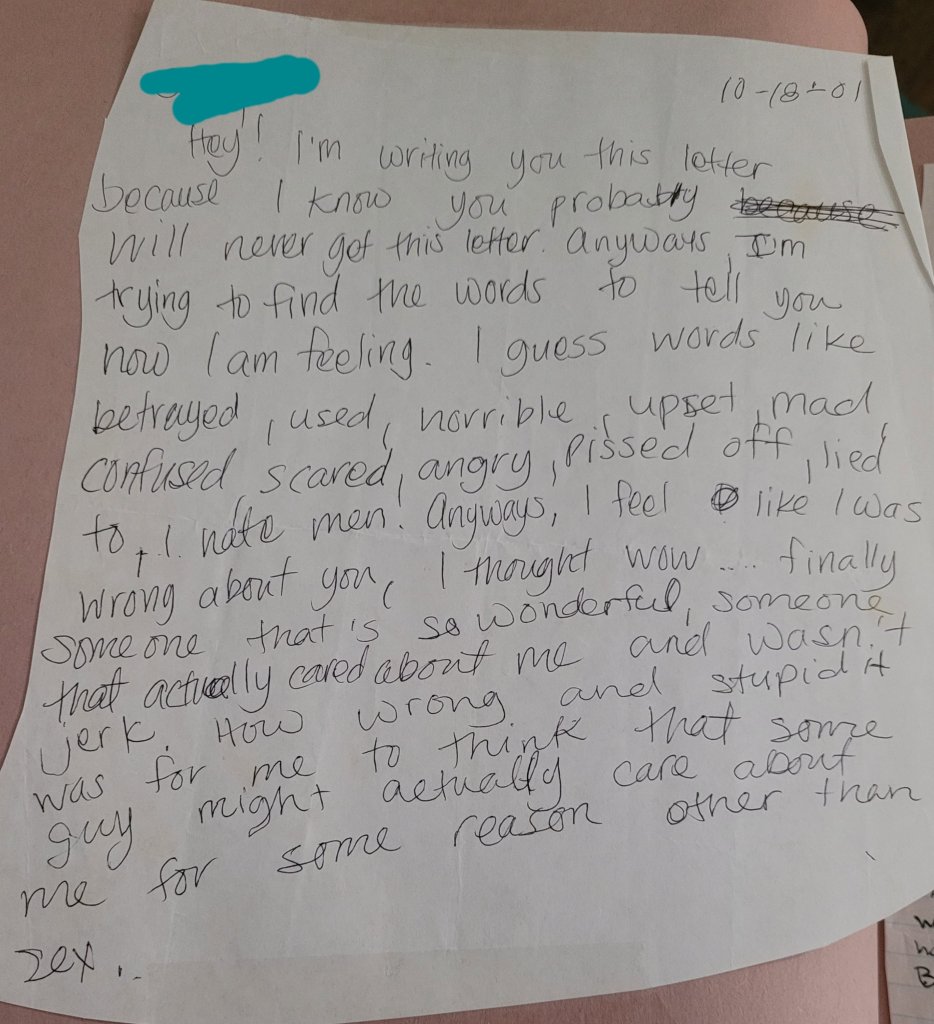 10-18-01
Hey! I'm writing you this letter
because I know you probably because
will never get this letter. Anyways, I'm
trying to find the words to tell you
how I am feeling. I guess words like
betrayed, used, horrible, upset, mad,
confused, scared, angry, pissed off, lied
to, I hate men! Anyways, I feel like I was
wrong about you, I thought wow.... finally
someone that's so wonderful, someone
that actually cared about me and wasn't
jerk. How wrong and stupid it
was for me to think that some
guy might actually care about
me for some reason other than
sex..